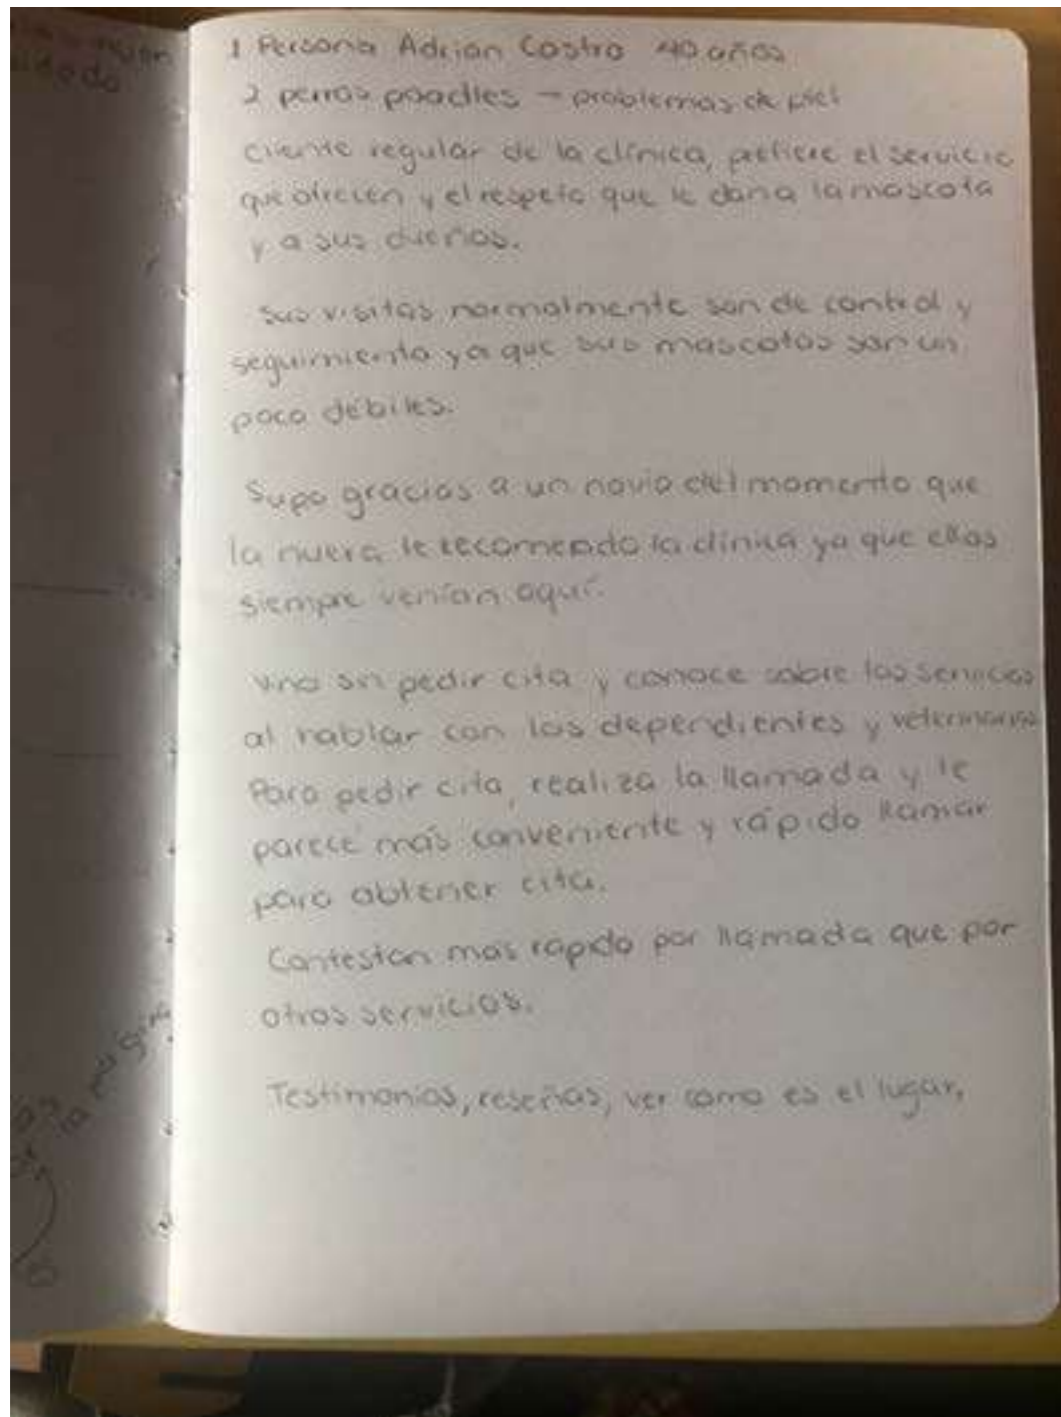 1 Persona Adrian Castro 40 años
2 perros poodles - problemas de piel
cliente regular de la clínica, prefiere el servicio
que ofrecen y el respeto que le dan a la mascota
y a sus dueños.
Sus visitas normalmente son de control y
seguimiento ya que sus mascotas son un
poco débiles.
Supo gracias a un novio del momento que
la nuera le recomendo la clínica ya que ellos
siempre venían aquí.
Vino sin pedir cita y conoce sobre los servicios
al hablar con los dependientes y veterinarios
Para pedir cita, realiza la llamada y le
parece más conveniente y rápido llamar
para obtener cita.
Contestan mas rapido por llamada que por
otros servicios.
Testimonios, reseñas, ver como es el lugar,